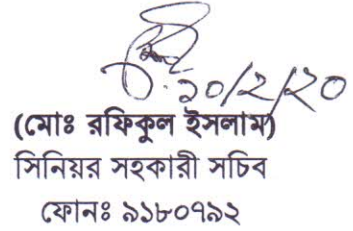 ১০/২/২০
(মোঃ রফিকুল ইসলাম)
সিনিয়র সহকারী সচিব
ফোনঃ ৯১৮০৭৯২